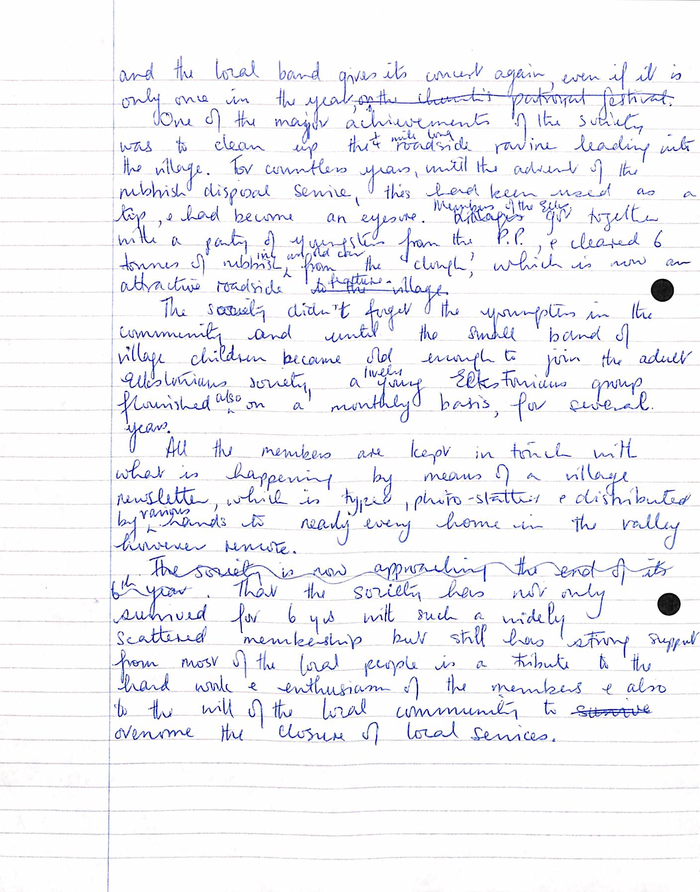 and the local band gives its concert again, even if it is
only once in the year, on the church's patronal festival.
One of the major achievements of the society
was to clean up the ¼ mile long roadside ravine leading into
the village. For countless years, until the advent of the
rubbish disposal service, this had been used as a
tip, & had become an eyesore. Members of the Elks. got together
with a party of youngsters from the P.P., & cleared 6
tonnes of rubbish, inc. an old car from the 'clough', which is now an
attractive roadside feature. to the village.
The society didn't forget the youngsters in the
community and until the small band of
village children became old enough to join the adult
Elkstonians society, a lively young Elkstonians group
flourished also on a monthly basis, for several
years.
All the members are kept in touch with
what is happening by means of a village
newsletter, which is typed, photo-statted & distributed
by various hands to nearly every home in the valley
however remote.
The society is now approaching the end of its
6th year. That the society has not only
survived for 6 yrs with such a widely
scattered membership but still has strong support
from most of the local people is a tribute to the
hard work & enthusiasm of the members & also
to the will of the local community to survive
overcome the closure of local services.